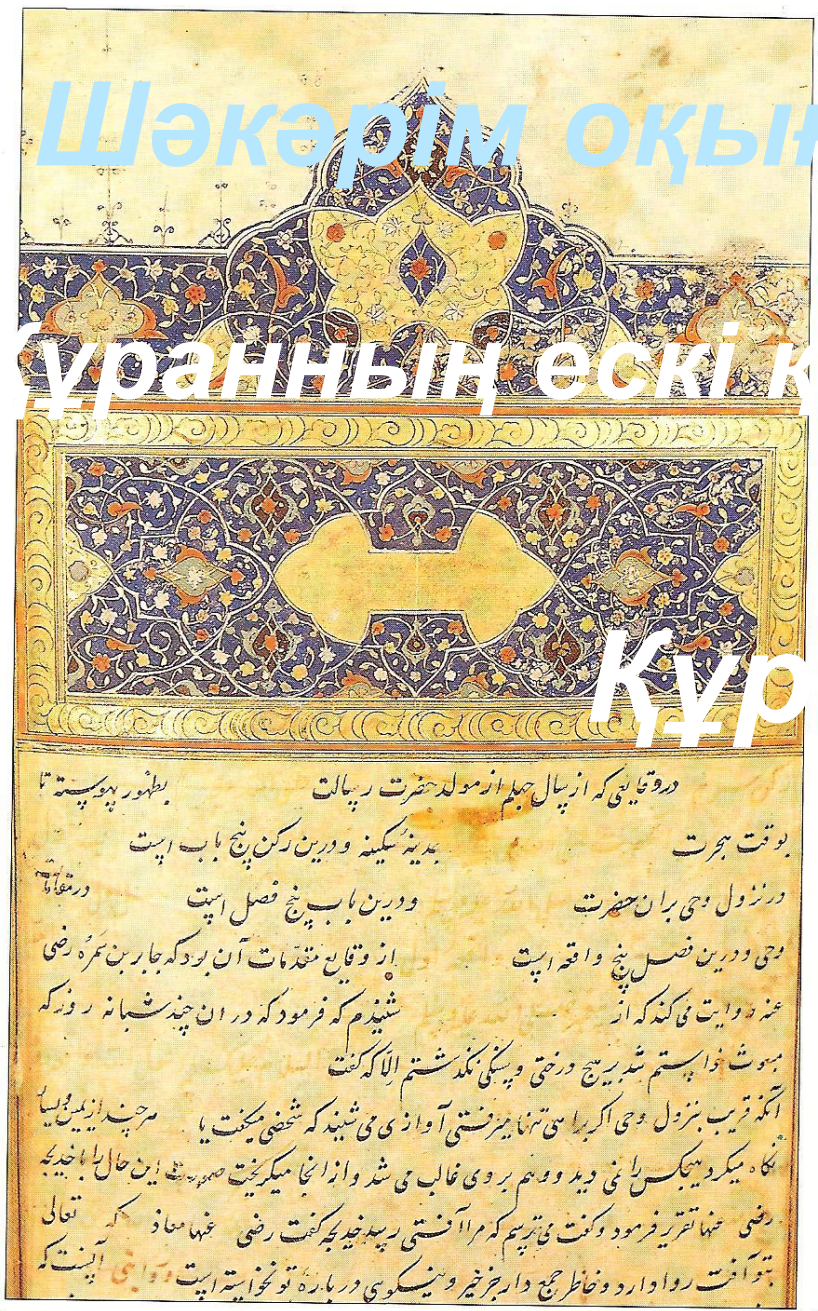 Шәкәрім оқы
Құранның ескі қ
Құр
در وقایعی که از سال چهلم از مولد حضرت رسالت بظهور پیوسته تا
بوقت هجرت بمدینهٔ سکینه و درین رکن پنج باب است
در نزول وحی بران حضرت ودرین باب پنج فصل است در مقدمات
وحی و درین فصل پنج واقعه است از وقایع مقدمات آن بود که جابر بن سَمُره رضی
عنه روایت می کند که از شنیدم که فرمود که در ان چند شبانه روز که
مبعوث خواستم شد بر هیچ درختی و سنگی نگذشتم اِلّا که گفت
آنکه قریب بنزول وحی اکر براهی تنها میرفتی آوازی می شنید که شخصی میکفت یا هر چند از یمین و یسار
نکاه میکرد هیچکس را نمی دید و وهم بر وی غالب می شد و از انجا میکریخت صورت این حال را با خدیجه
رضی عنها تقریر فرمود و کفت می ترسم که مرا آفتی رسد خدیجه کفت رضی عنها معاذ که تعالی
بتو آفت روا دارد و خاطر جمع دار جز خیر و نیکویی در بارهٔ تو نخواسته است و روایتی آنست که